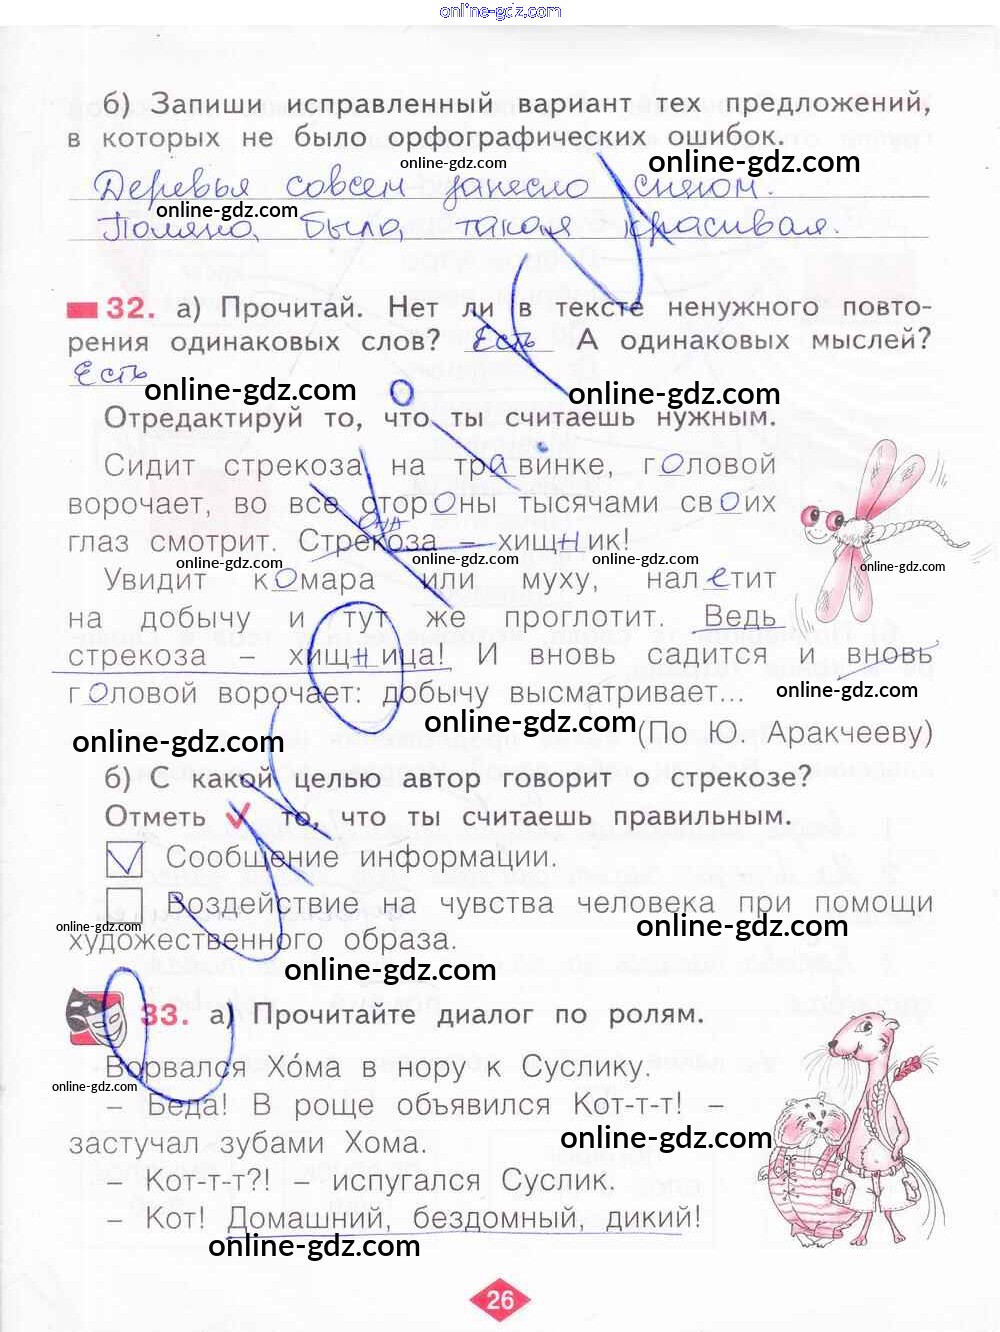 online-gdz.com
б) Запиши исправленный вариант тех предложений,
в которых не было орфографических ошибок.
online-gdz.com
online-gdz.com
Деревья совсем занесло снегом.
online-gdz.com
Поляна была такая красивая.
32. а) Прочитай. Нет ли в тексте ненужного повто-
рения одинаковых слов? Есть А одинаковых мыслей?
Есть
online-gdz.com
online-gdz.com
Отредактируй то, что ты считаешь нужным.
Сидит стрекоза на травинке, головой
ворочает, во все стороны тысячами своих
она
глаз смотрит. Стрекоза – хищник!
online-gdz.com
online-gdz.com
online-gdz.com
Увидит комара или муху, налетит
на добычу и тут же проглотит. Ведь
стрекоза – хищница! И вновь садится и вновь
головой ворочает: добычу высматривает...
online-gdz.com
online-gdz.com
(По Ю. Аракчееву)
online-gdz.com
б) С какой целью автор говорит о стрекозе?
Отметь то, что ты считаешь правильным.
Сообщение информации.
Воздействие на чувства человека при помощи
online-gdz.com
online-gdz.com
художественного образа.
online-gdz.com
33. а) Прочитайте диалог по ролям.
Ворвался Хо́ма в нору к Суслику.
online-gdz.com
– Беда! В роще объявился Кот-т-т! –
застучал зубами Хома.
online-gdz.com
– Кот-т-т?! – испугался Суслик.
– Кот! Домашний, бездомный, дикий!
online-gdz.com
26